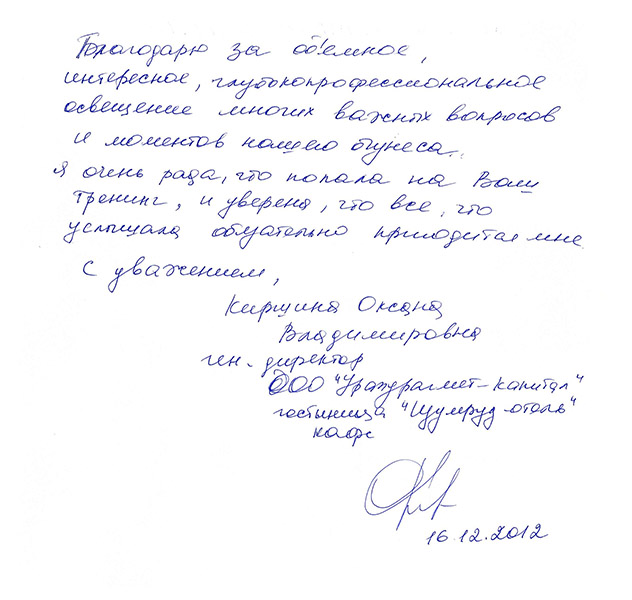 Благодарю за объемное,
интересное, глубокопрофессиональное
освещение многих важных вопросов
и моментов нашего бизнеса.
Я очень рада, что попала на Ваш
тренинг, и уверена, что все, что
услышала обязательно пригодится мне
С уважением,
Кирщина Оксана
Владимировна
ген. директор
ООО "Уралдрагмет-капитал"
гостиница "Изумруд-отель"
кафе
16.12.2012